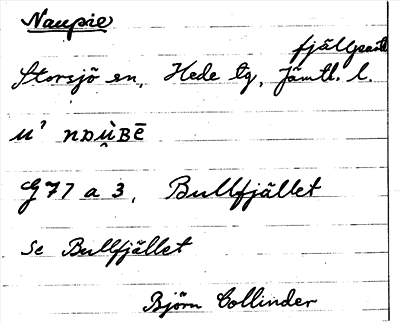 Naupie
fjällpart
Storsjö sn, Hede tg, Jämtl. l.
u' nᴅù̯ʙē
G 77 a 3, Bullfjället
se Bullfjället
Björn Collinder